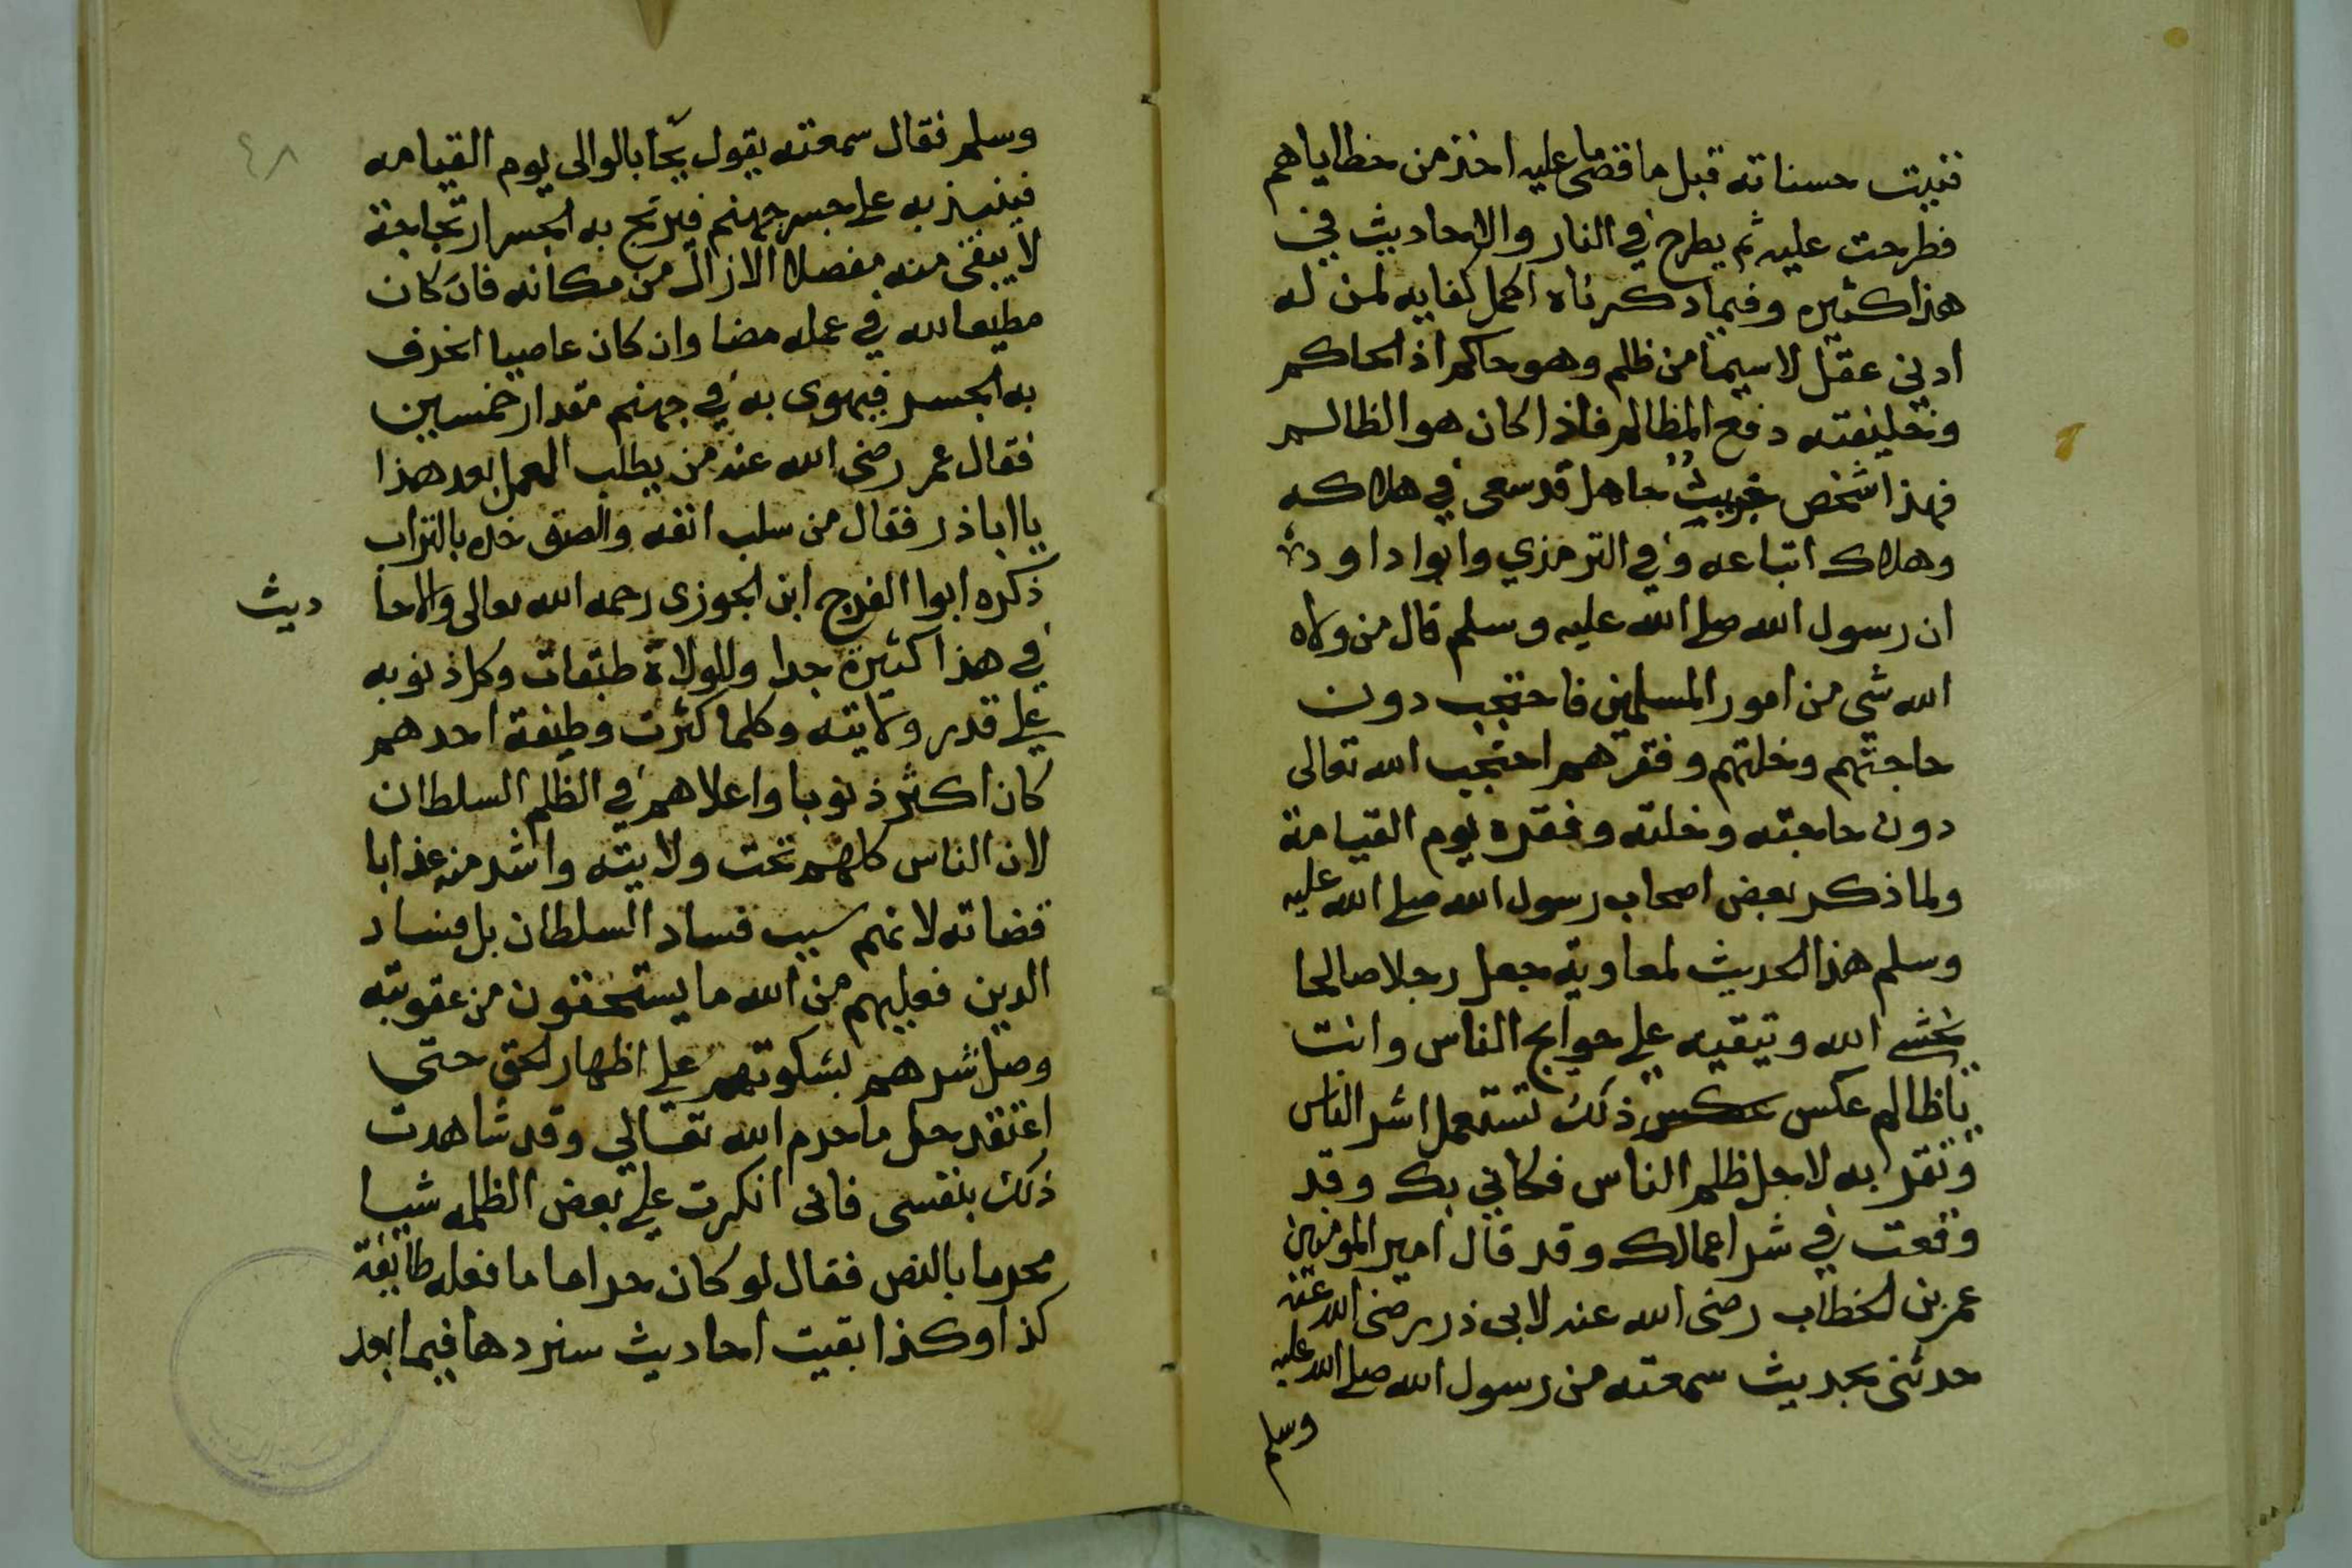 فنيت حسناته قبل ما قضى ما عليه اخذ من خطاياهم
فطرحت عليه ثم يطرح في النار والاحاديث في
هذا كثيره وفيما ذكرناه اكمل كفايه لمن له
ادني عقل لا سيما من ظلم وهو حاكم اذ الحاكم
وظيفته دفع المظالم فاذا كان هو الظالم
فهذا شخص خبيث جاهل قد سعى في هلاكه
وهلاك اتباعه وفي الترمذي وابوا داود
ان رسول الله صلى الله عليه وسلم قال من ولاه
الله شي من امور المسلمين فاحتجب دون
حاجتهم وخلتهم وفقرهم احتجب الله تعالى
دون حاجته وخلته وفقره يوم القيامة
ولما ذكر بعض اصحاب رسول الله صلى الله عليه
وسلم هذا الحديث لمعاوية جعل رجلا صالحا
يخشى الله ويتقيه علي حوايج الناس وانت
ياظالم عكس عكس ذلك تستعمل اشر الناس
وتغر به لاجل ظلم الناس فكاني بك وقد
وقعت في شر اعمالك وقد قال امير المومنين
عمر بن الخطاب رضى الله عنه لابى ذر رضى الله عنه
حدثنى بحديث سمعته من رسول الله صلى الله عليه
وسلم
٤٨
وسلم فقال سمعته يقول يجا بالوالى يوم القيامه
فينبذ به على جسر جهنم فيرتج به الجسر ارتجاجة
لا يبقى منه مفصلا الا زال من مكانه فان كان
مطيعا لله في عمله مضا وان كان عاصيا انخرف
به الجسر فيهوى به في جهنم مقدار خمسين
فقال عمر رضى الله عنه من يطلب العمل بعد هذا
يا اباذر فقال من سلب انفه والصق خده بالتراب
ذكره ابوا الفرج ابن الجوزى رحمه الله تعالى والاحا ديث
في هذا كثيرة جدا وللولاة طبقات وكل ذنوبه
على قدر ولايته وكلما كثرت وظيفة احدهم
كان اكثر ذنوبا واعلاهم في الظلم السلطان
لان الناس كلهم تحت ولايته واشد منه عذابا
قضاته لانهم سبب فساد السلطان بل فساد
الدين فعليهم من الله ما يستحقون من عقوبته
وصل شرهم بسكوتهم على اظهار الحق حتى
اعتقد حل ما حرم الله تعالي وقد شاهدت
ذلك بنفسى فانى انكرت علي بعض الظلمه شيبا
محرما بالنص فقال لو كان حراما ما فعله طايفة
كذا وكذا بقيت احاديث سنردها فيما بعد